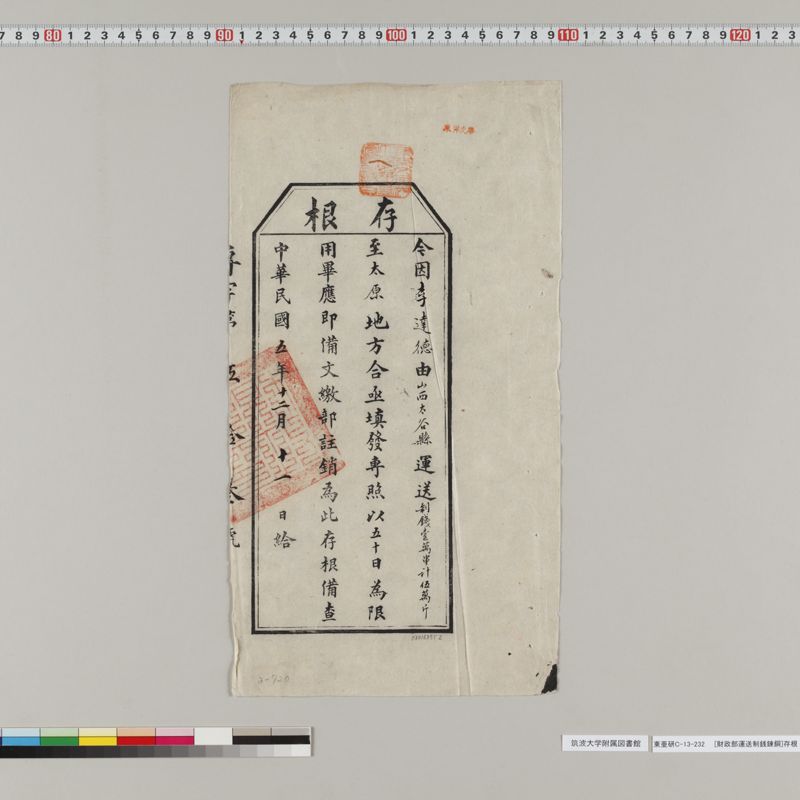 7 8 9 80 1 2 3 4 5 6 7 8 9 90 1 2 3 4 5 6 7 8 9 100 1 2 3 4 5 6 7 8 9 110 1 2 3 4 5 6 7 8 9 120 1 2 3
存根
今因李達德由山西太谷縣運送制錢壹萬串計伍萬斤
至太原地方合亟填發專照以五十日為限
用畢應即備文繳部註銷為此存根備查
中華民國五年十二月十一日給
字第伍叁號
2-720
筑波大学附属図書館
東亜研C-13-232 [財政部運送制銭錬銅]存根